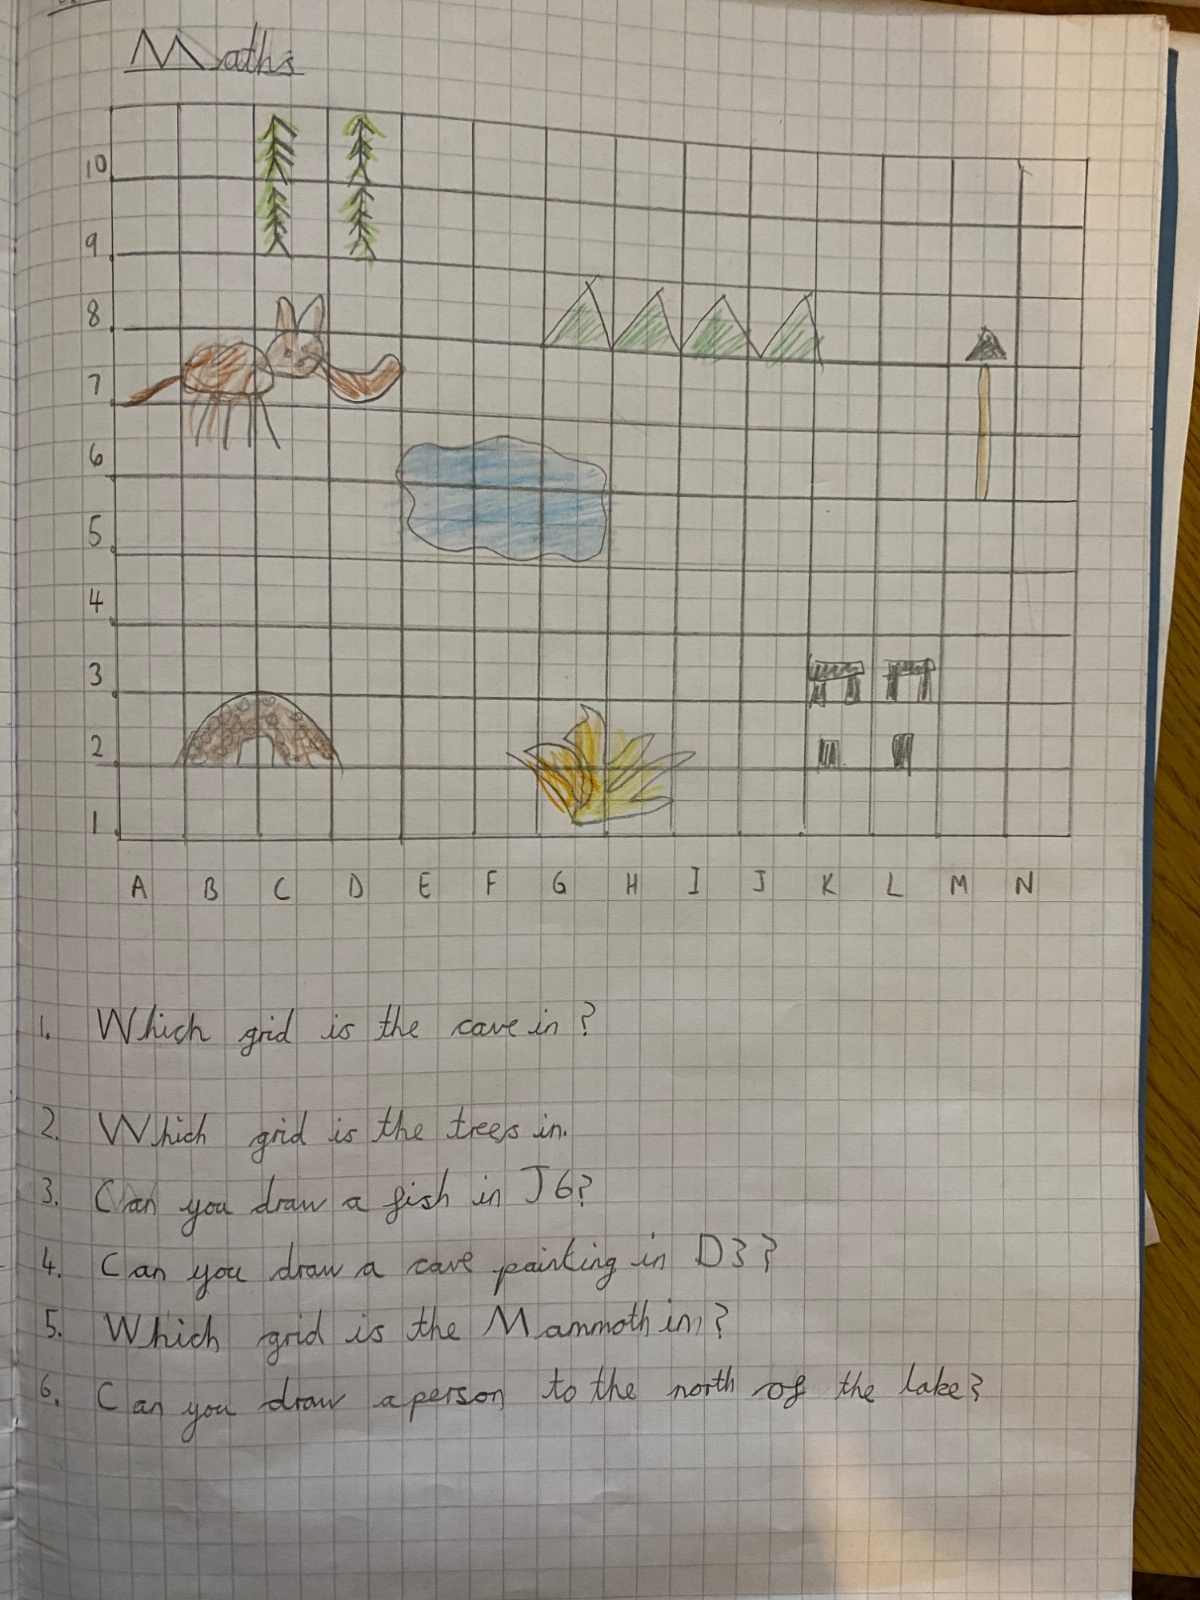 Maths
10
9
8
7
6
5
4
3
2
1
A B C D E F G H I J K L M N
1. Which grid is the cave in?
2. Which grid is the trees in.
3. Can you draw a fish in J6?
4. Can you draw a cave painting in D3?
5. Which grid is the Mammoth in?
6. Can you draw a person to the north of the lake?